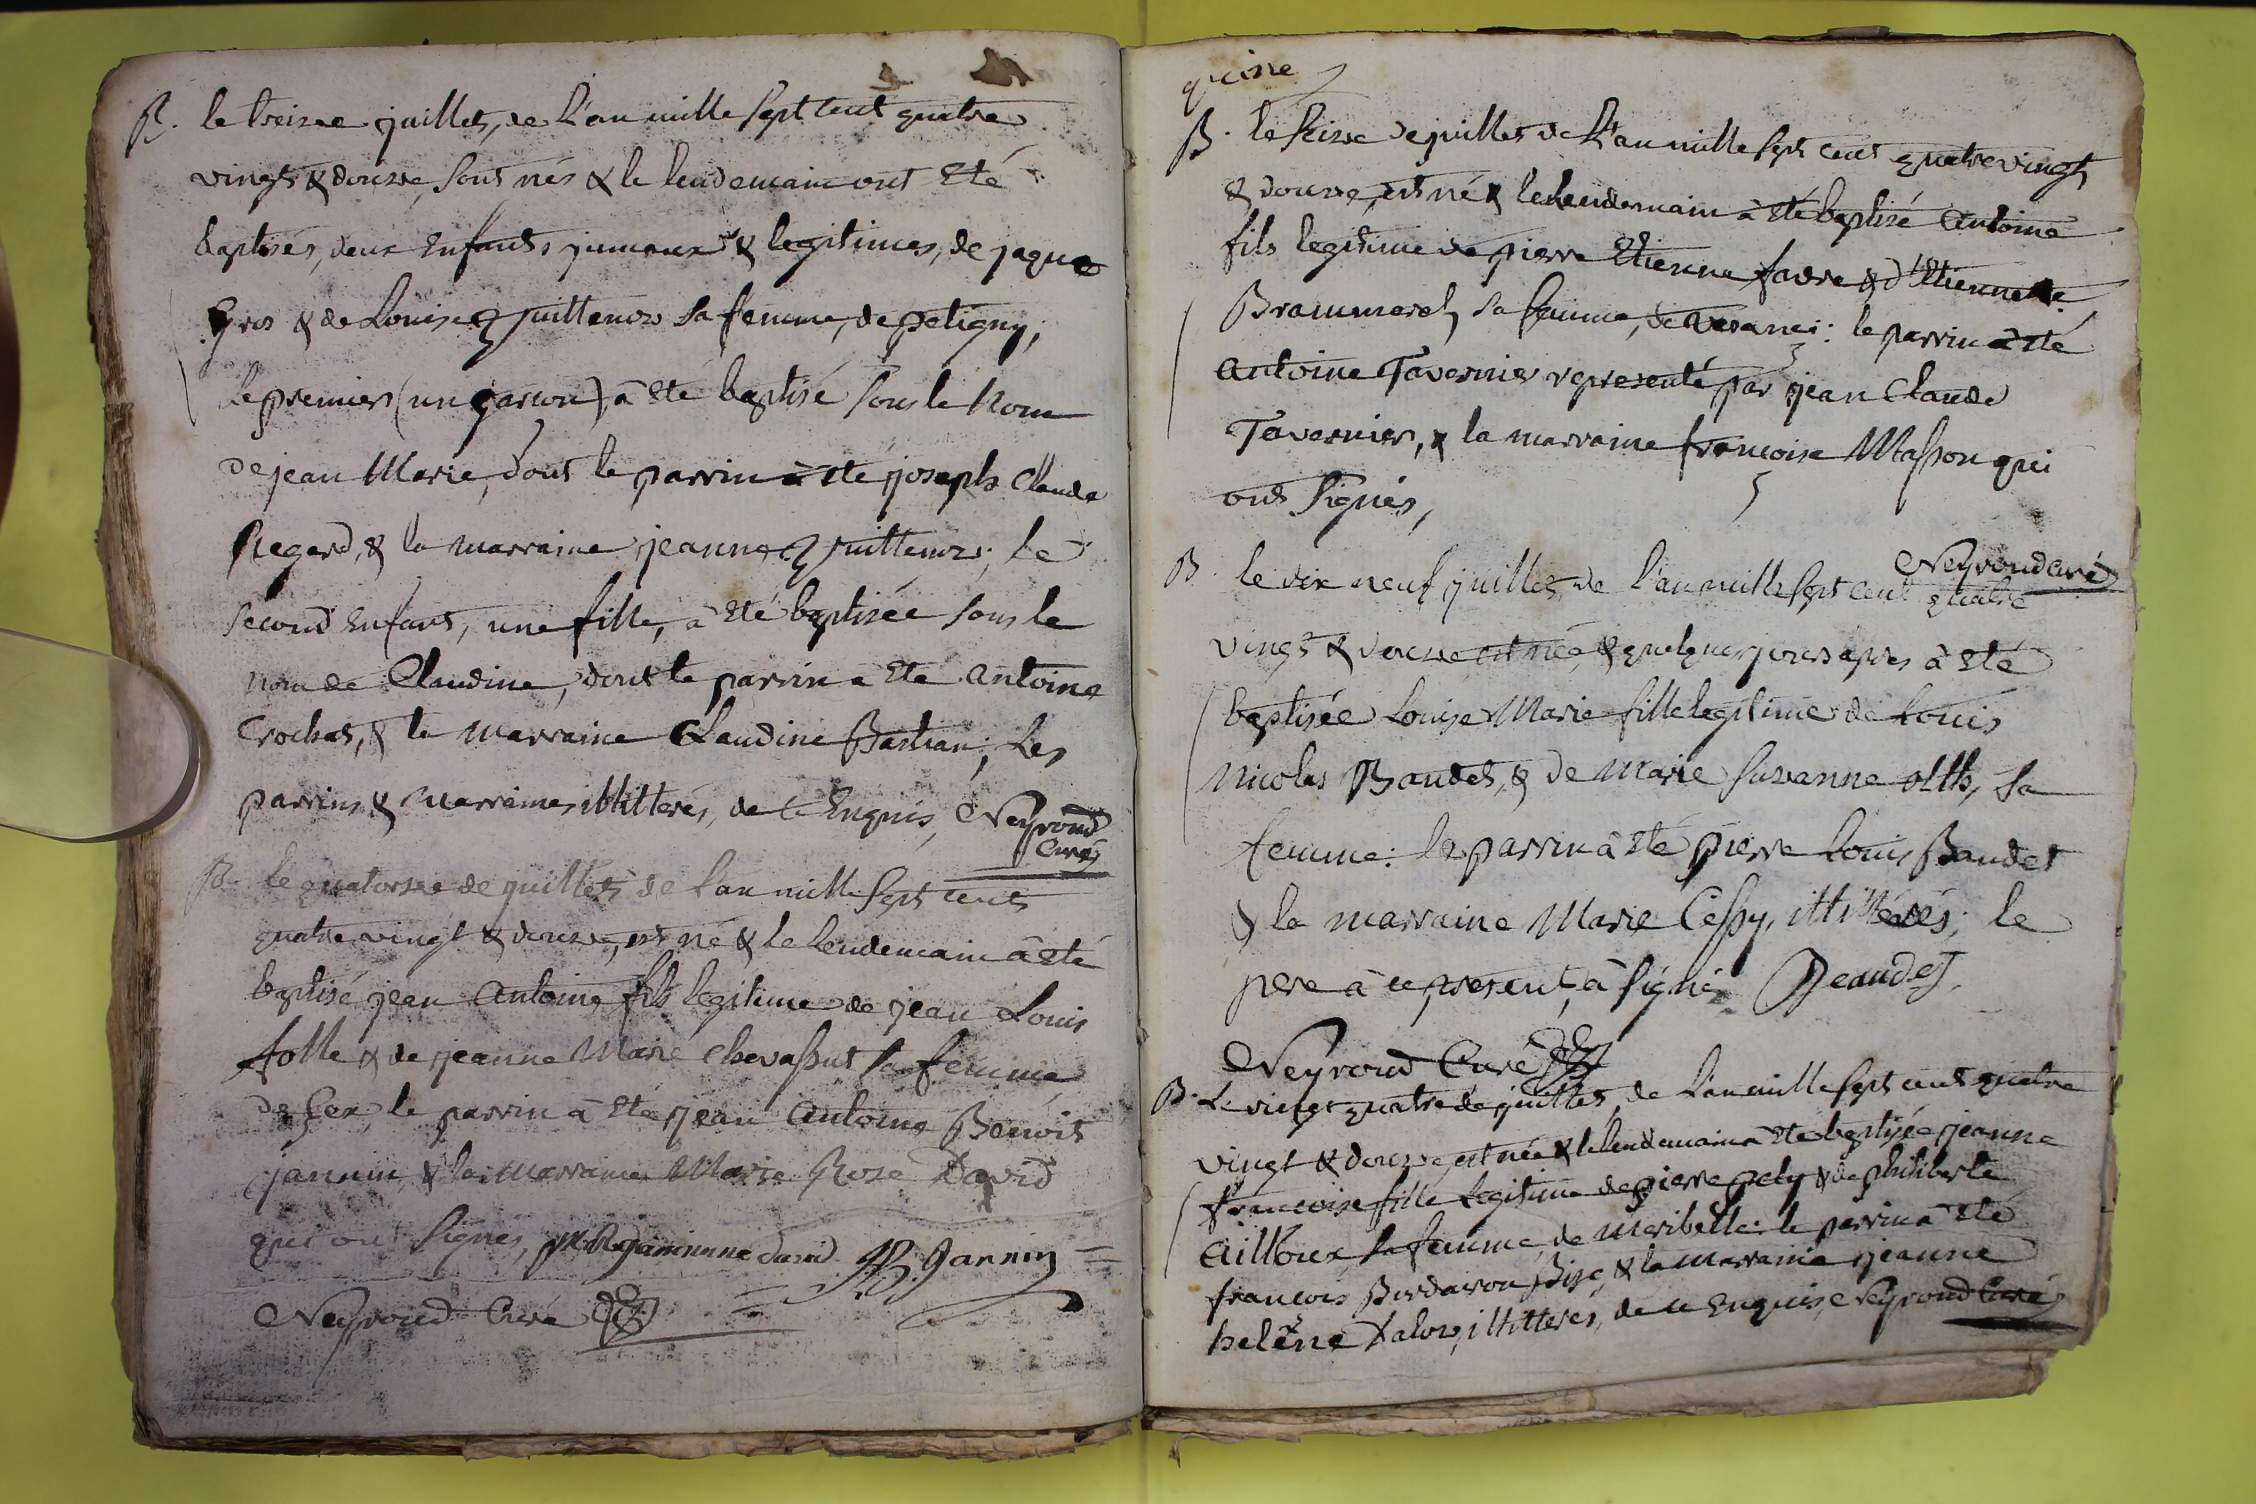 B. le treize juillet, de l'an mille sept cent quatre
vingt & douze, sont nés & le lendemain ont été
baptisés, deux enfants jumeaux & legitimes, de jaque
gros & de Louise quittenoz sa femme, de petigny,
le premier (un garson), à été baptisé sous le nom
de jean Marie, dont le parrin à été joseph Claude
Regard, & la marraine jeanne quittenoz; Le
second enfant, une fille, à été baptisée sous le
nom de Claudine, dont le parrin à été antoine
Crochat, & la marraine Claudine Bastian; Les
parrins & marraines illitterés, de ce enquis, Neyroud
Curé
B. le quatorze de juillet de l'an mille sept cents
quatre vingt & douze, est né & le lendemain à été
baptisé jean antoine fils legitime de jean Louis
folle & de jeanne Marie chevassut sa femme
de Gex, le parrin à été jean antoine Benoit
jannin, & la marraine Marie Rose David
qui ont signés, david JB Jannin
Neyroud Curé
quine
B. le seize de juillet de l'an mille sept cent quatre vingt
& douze, est né & le lendemain à été baptisé antoine
fils legitime de pierre Etienne favre & d'Etiennette
Brammerel, sa femme, de : le parrin à été
antoine Tavernier representé par jean Claude
Tavernier, & la marraine francoise Masson qui
ont signés,
Neyroud curé
B. le dix neuf juillet, de l'an mille sept cent quatre
vingt & douze est née, & quelques jours apres à été
baptisée Louise Marie fille legitime de Louis
Nicolas Baudet, & de Marie Suzanne olth, sa
femme: le parrin à été pierre Louis Baudet
& la marraine Marie Cessy, illitterés; le
pere à ce present, à signé Beaudet.
Neyroud Curé
B. Le vingt quatre de juillet, de l'an mille sept cent quatre
vingt & douze, est née & le lendemain à été baptisée jeanne
francoise fille legitime de pierre pety & de philiberte
ailloux sa femme, de Maribelle: le parrin à été
francois Burdairon & la marraine jeanne
helêne illitterés, de ce enquis, Neyroud Curé